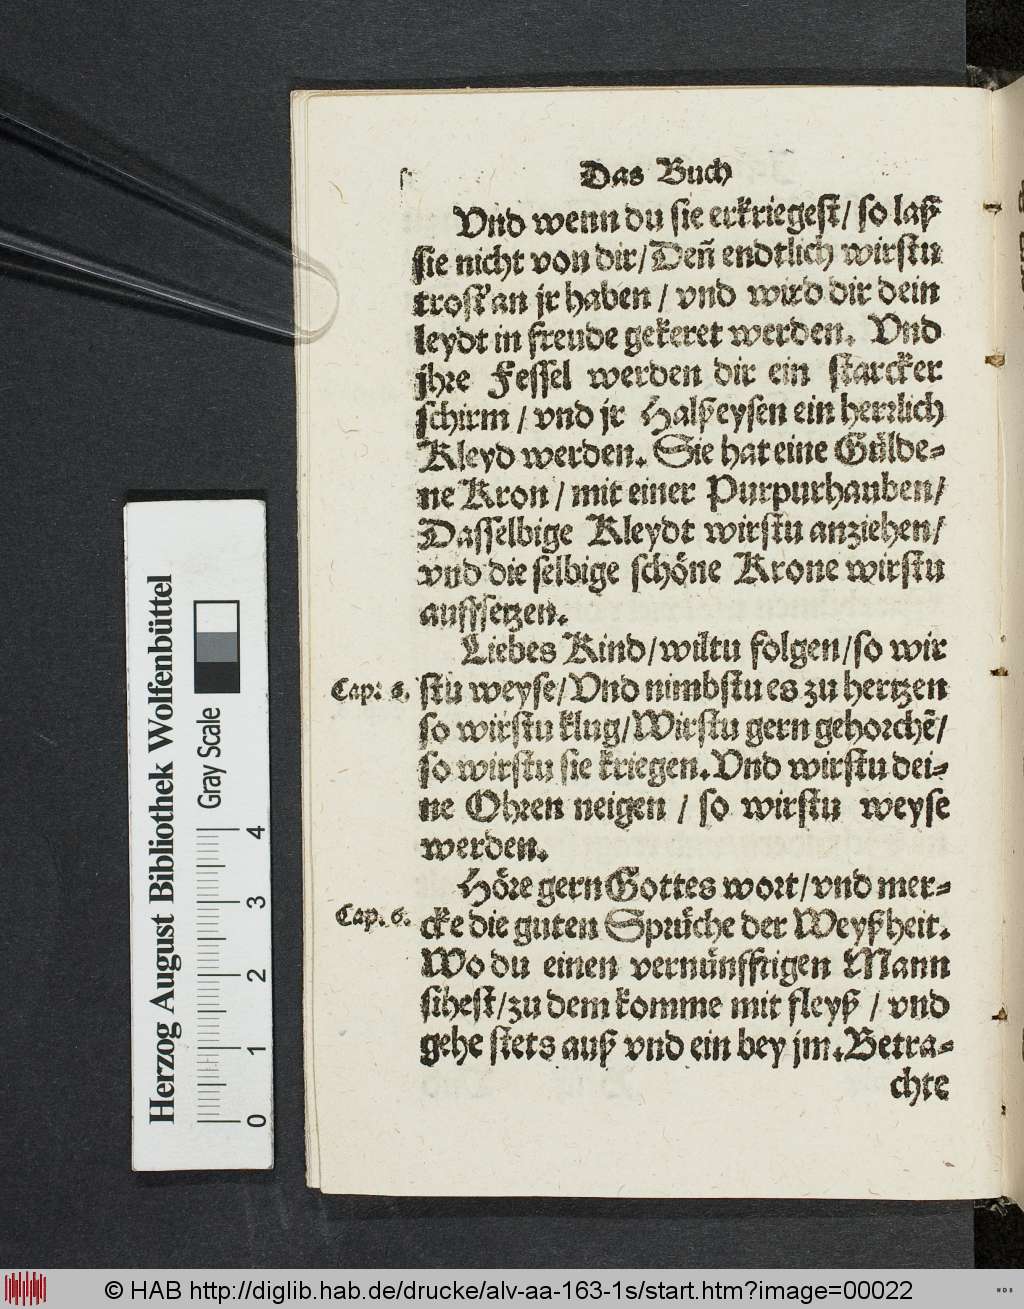 Das Buch
Vnd wenn du sie erkriegest/ so laß
sie nicht von dir/ Deñ endtlich wirstu
trost an jr haben / vnd wird dir dein
leydt in freude gekeret werden. Vnd
jhre Fessel werden dir ein starcker
schirm / vnd jr Halßeysen ein herrlich
Kleyd werden. Sie hat eine Gülde-
ne Kron / mit einer Purpurhauben/
Dasselbige Kleydt wirstu anziehen/
vnd die selbige schöne Krone wirstu
auffsetzen.
Liebes Kind/ wiltu folgen/ so wir
Cap: 6. stu weyse/ Vnd nimbstu es zu hertzen
so wirstu klug/ Wirstu gern gehorchẽ/
so wirstu sie kriegen. Vnd wirstu dei-
ne Ohren neigen / so wirstu weyse
werden.
Höre gern Gottes wort/ vnd mer-
Cap. 6. cke die guten Sprüche der Weyßheit.
Wo du einen vernünfftigen Mann
sihest/ zu dem komme mit fleyß / vnd
gehe stets auß vnd ein bey jm. Betra-
chte
Herzog August Bibliothek Wolfenbüttel
Gray Scale
0 1 2 3 4
© HAB http://diglib.hab.de/drucke/alv-aa-163-1s/start.htm?image=00022